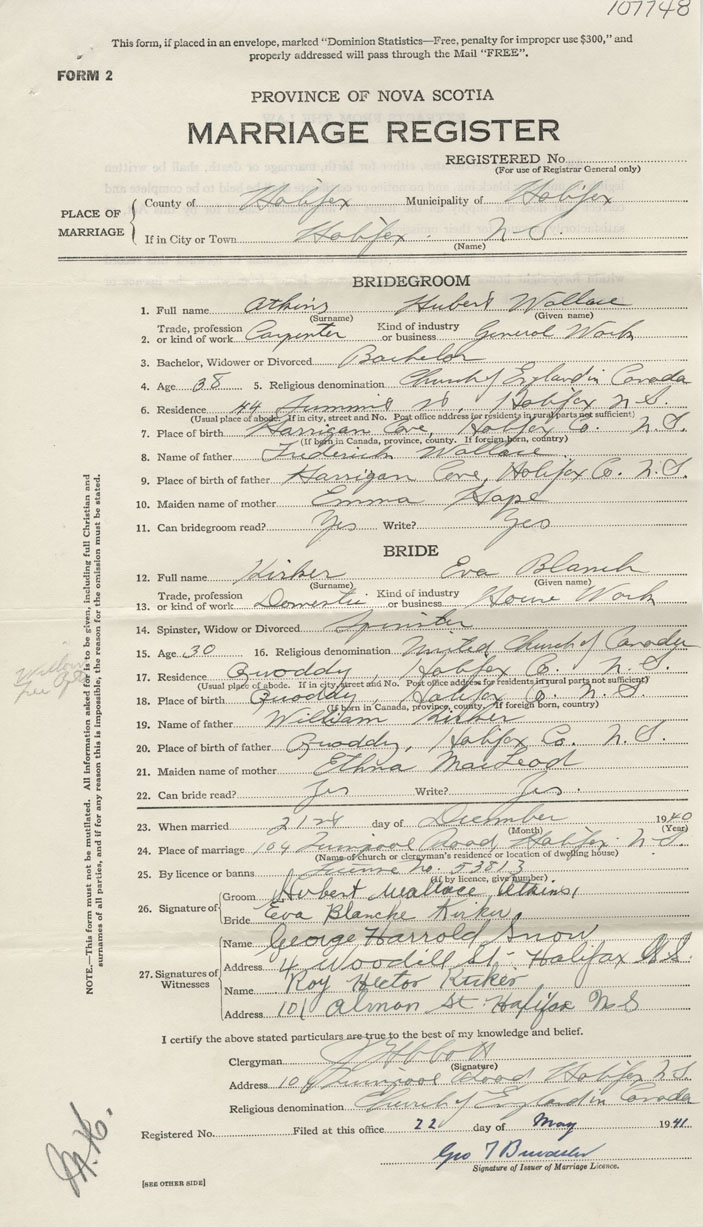 107748
This form, if placed in an envelope, marked "Dominion Statistics—Free, penalty for improper use $300," and
properly addressed will pass through the Mail "FREE".
FORM 2
PROVINCE OF NOVA SCOTIA
MARRIAGE REGISTER
REGISTERED No.
(For use of Registrar General only)
PLACE OF MARRIAGE
County of Halifax Municipality of Halifax
If in City or Town Halifax N-S.
(Name)
BRIDEGROOM
1. Full name Atkins Hubert Wallace
(Surname) (Given name)
2. Trade, profession or kind of work Carpenter Kind of industry or business General Work
3. Bachelor, Widower or Divorced Bachelor
4. Age 38 5. Religious denomination Church of England in Canada
6. Residence 44 Summit St Halifax N.S.
(Usual place of abode. If in city, street and No. Post office address for residents in rural parts not sufficient)
7. Place of birth Harrigan Cove, Halifax Co. N.S.
(If born in Canada, province, county. If foreign born, country)
8. Name of father Frederick Wallace
9. Place of birth of father Harrigan Cove, Halifax Co. N.S.
10. Maiden name of mother Emma Hape
11. Can bridegroom read? Yes Write? Yes
BRIDE
12. Full name Kirker Eva Blanch
(Surname) (Given name)
13. Trade, profession or kind of work Domestic Kind of industry or business House Work
14. Spinster, Widow or Divorced Spinster
15. Age 30 16. Religious denomination United Church of Canada
17. Residence Quoddy, Halifax Co. N.S.
(Usual place of abode. If in city, street and No. Post office address for residents in rural parts not sufficient)
18. Place of birth Quoddy, Halifax Co. N.S.
(If born in Canada, province, county. If foreign born, country)
19. Name of father William Kirker
20. Place of birth of father Quoddy, Halifax Co. N.S.
21. Maiden name of mother Ethna MacLeod
22. Can bride read? Yes Write? Yes.
23. When married 21st day of December 1940
(Month) (Year)
24. Place of marriage 104 Road Halifax N.S.
(Name of church or clergyman's residence or location of dwelling house)
25. By licence or banns License no. 5383
(If by licence, give number)
26. Signature of
Groom Hubert Wallace Atkins,
Bride Eva Blanche Kirker
27. Signatures of Witnesses
Name George Harrold Snow
Address 4 Woodill St. Halifax N.S.
Name Roy Hector Kirker
Address 101 Almon St Halifax N S
I certify the above stated particulars are true to the best of my knowledge and belief.
Clergyman Abbott
(Signature)
Address 104 Road Halifax N.S.
Religious denomination Church of England in Canada
Registered No. Filed at this office 22 day of May 1941.
Geo T
Signature of Issuer of Marriage Licence.
[SEE OTHER SIDE]
NOTE.—This form must not be mutilated. All information asked for is to be given, including full Christian and
surnames of all parties, and if for any reason this is impossible, the reason for the omission must be stated.
M.K.